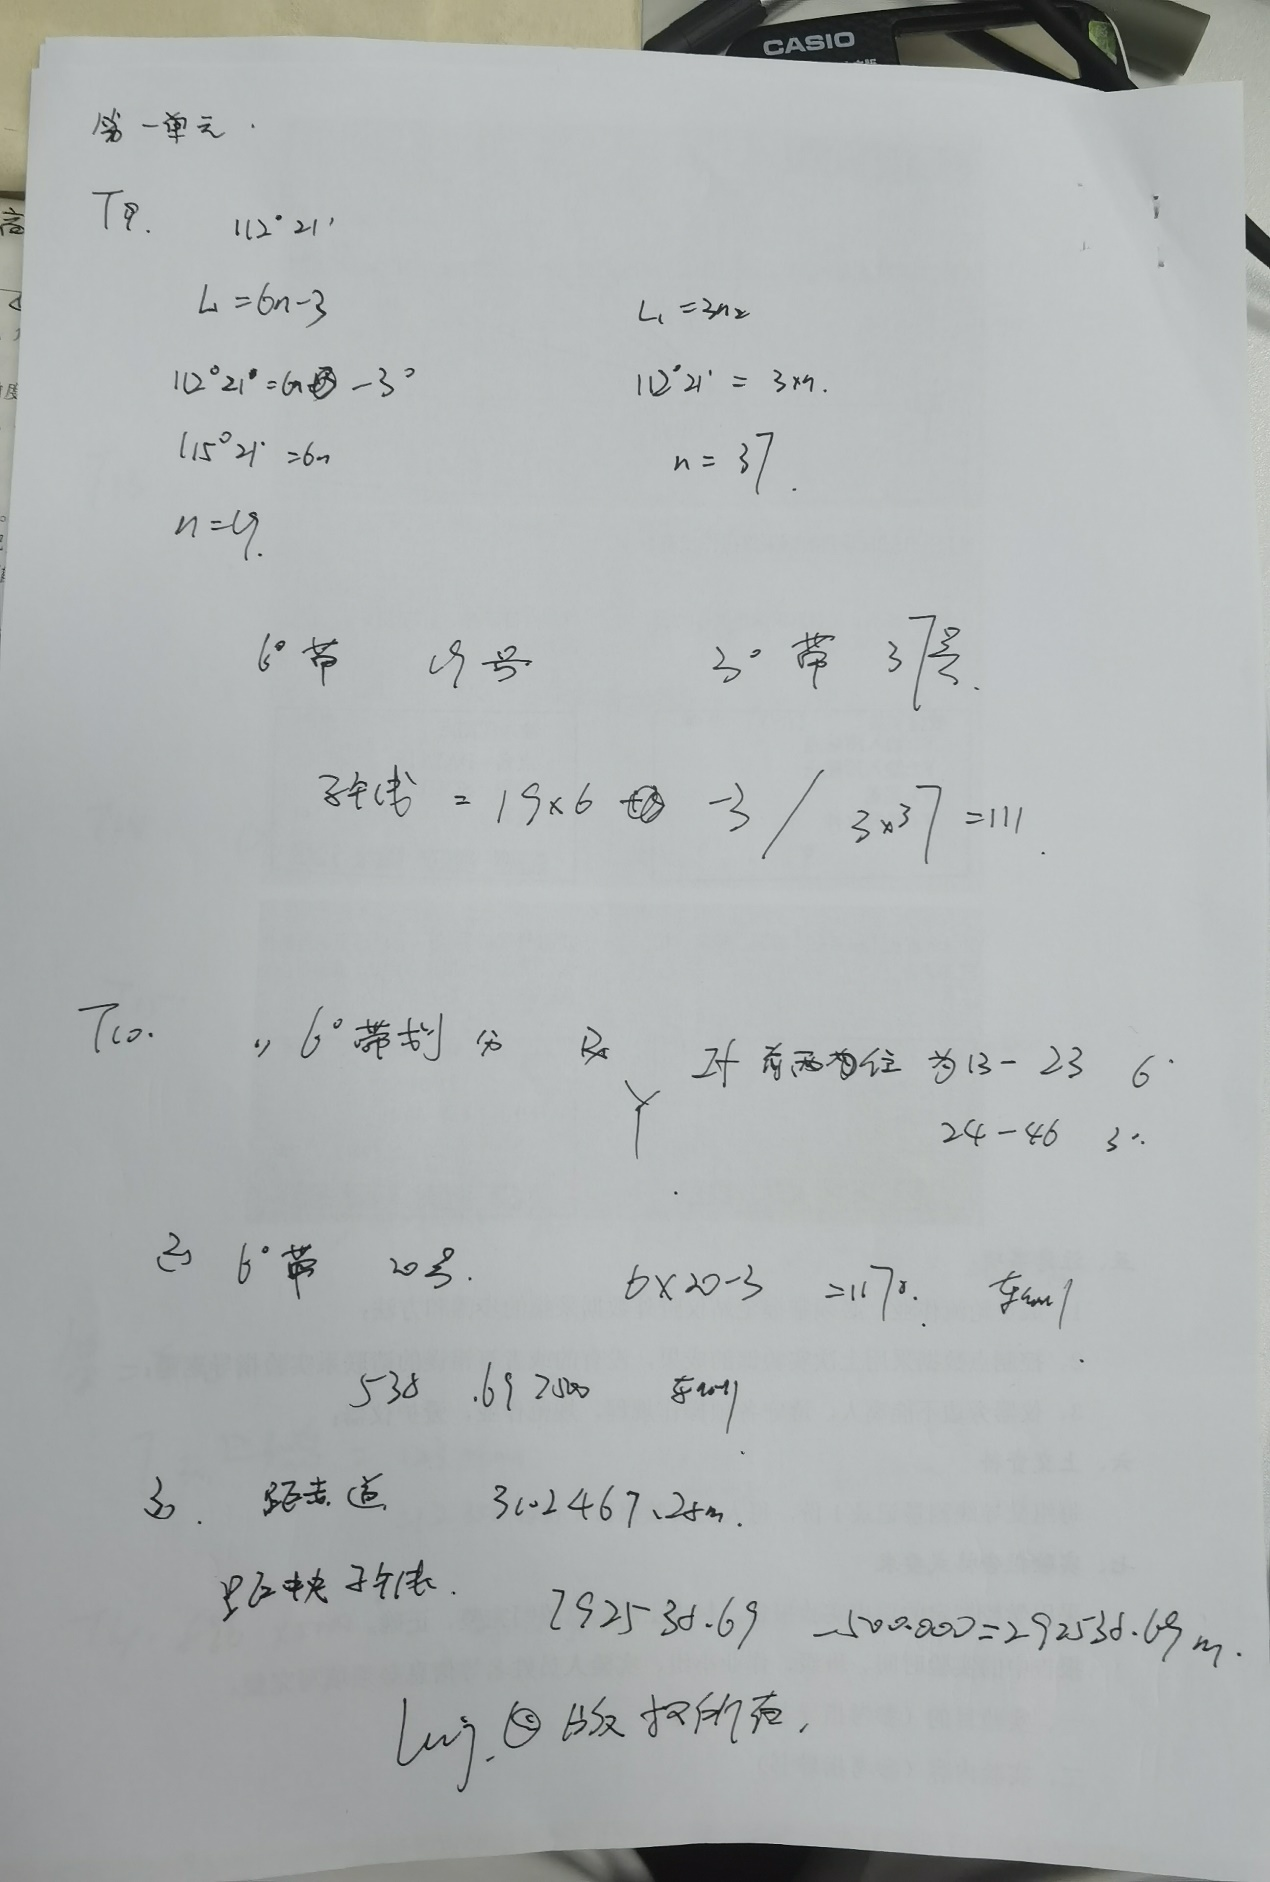 CASIO
第一单元.
T9. 112°21'
L=6n-3 L₁=3n₂
112°21'=6n -3° 112°21' = 3×n.
115°21'=6n n=37.
n=19.
6°带 19号 3°带 37号.
子午线 = 19×6 -3 / 3×37=111.
T10. 1) 6°带划分 Y 对前两位 为13-23 6°
24-46 3°.
2) 6°带 20号. 6×20-3 =117°.
538 .69
3). 距赤道 3102467.28m.
距中央子午线. 792538.69 -500.000=292538.69m.
Luoj.